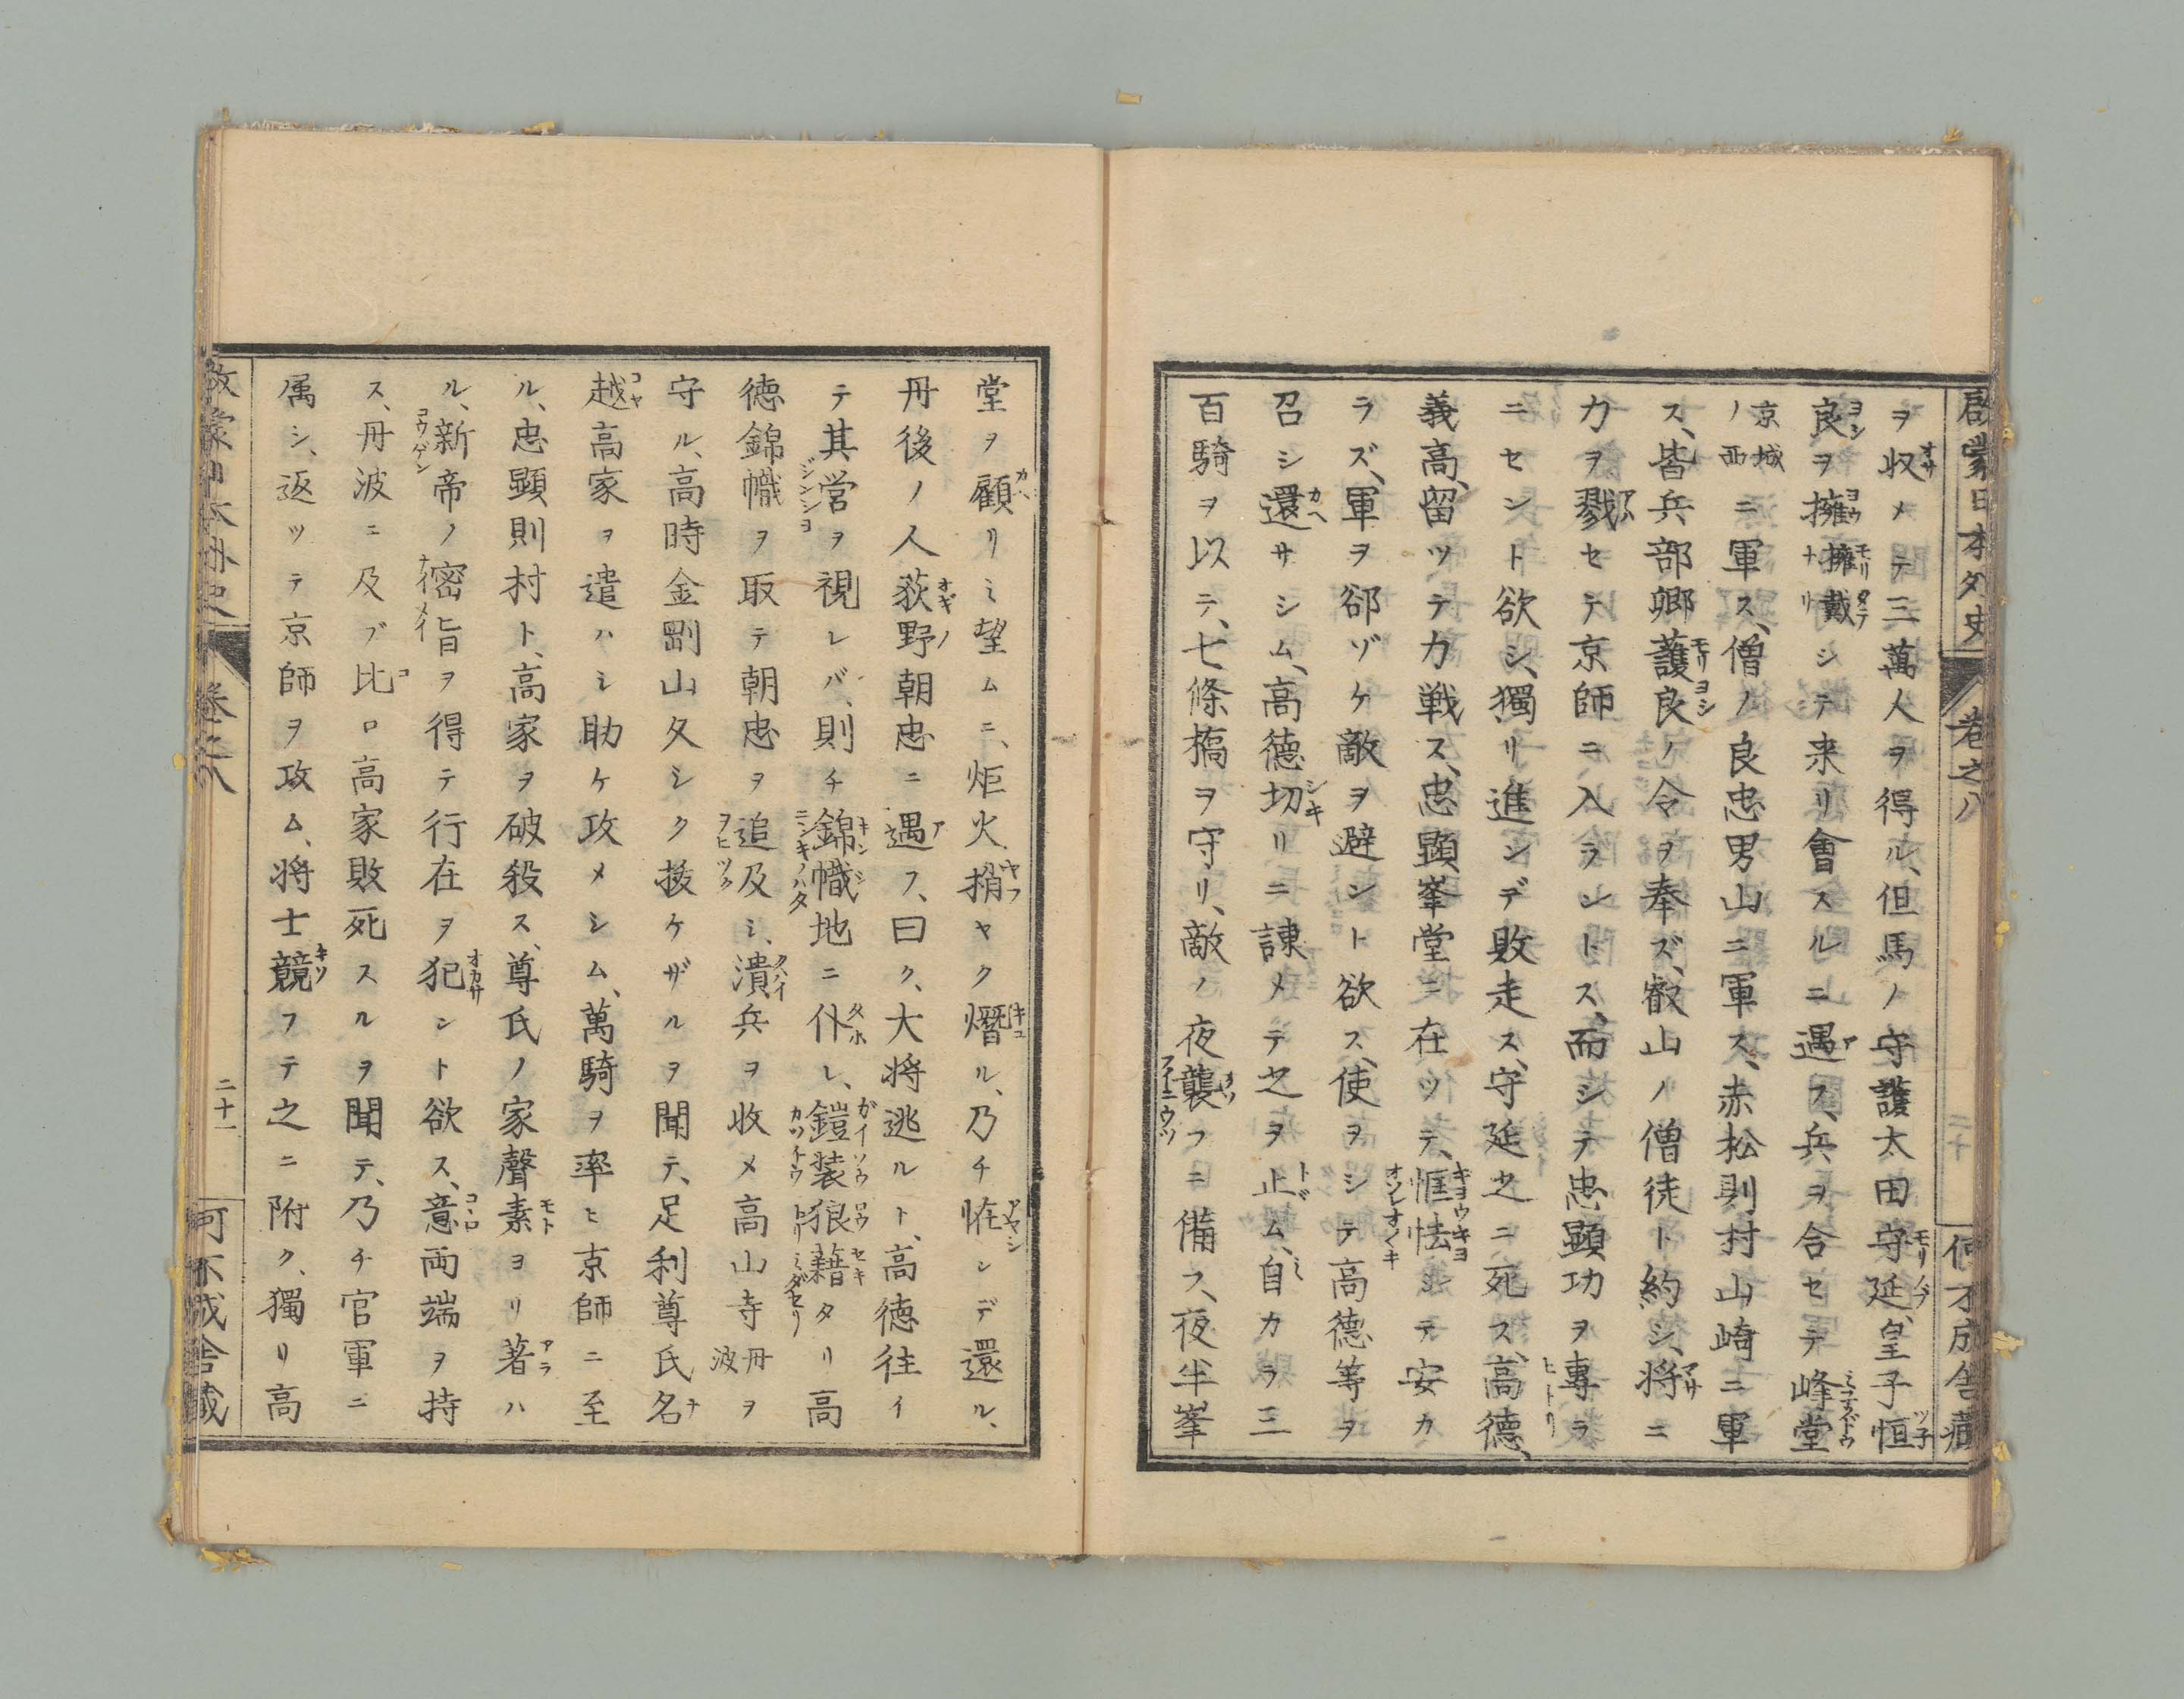 啓蒙日本外史 巻之八 二十 何不成舎蔵
ヲ收メテ三萬人ヲ得ル、但馬ノ守護太田守延、皇子恒
良ヲ擁擁戴ナリシテ来リ會スルニ遇フ、兵ヲ合セテ峰堂
京城ノ西ニ軍ス、僧ノ良忠男山ニ軍ス、赤松則村山崎ニ軍
ス、皆兵部卿護良ノ令ヲ奉ズ、叡山ノ僧徒ト約シ、将ニ
力ヲ戮セテ京師ニ入ラントス、而シテ忠顕功ヲ專ラ
ニセント欲シ、獨リ進ンデ敗走ス、守延之ニ死ス、高德、
義高、留ツテ力戦ス、忠顕峯堂ニ在ツテ、恇怯シテ安カ
ラズ、軍ヲ郤ゾケ敵ヲ避ント欲ス、使ヲシテ高德等ヲ
召シ還サシム、高德切リニ諌メテ之ヲ止ム、自カラ三
百騎ヲ以テ、七條橋ヲ守リ、敵ノ夜襲フニ備フ、夜半峯
堂ヲ顧リミ望ムニ、炬火稍ヤク熸ル、乃チ恠ンデ還ル、
丹後ノ人荻野朝忠ニ遇フ、曰ク、大将逃ルト、高德往イ
テ其営ヲ視レバ、則チ錦幟地ニ仆レ、鎧装狼藉タリ高
德錦幟ヲ取テ朝忠ヲ追及シ、潰兵ヲ收メ高山寺丹波ヲ
守ル、高時金剛山久シク拔ケザルヲ聞テ、足利尊氏名
越高家ヲ遣ハシ助ケ攻メシム、萬騎ヲ率ヒ京師ニ至
ル、忠顕則村ト、高家ヲ破殺ス、尊氏ノ家聲素ヨリ著ハ
ル、新帝ノ密旨ヲ得テ行在ヲ犯ント欲ス、意両端ヲ持
ス、丹波ニ及ブ比ロ高家敗死スルヲ聞テ、乃チ官軍ニ
属シ、返ツテ京師ヲ攻ム、将士競フテ之ニ附ク、獨リ高
啓蒙日本外史 巻之八 二十一 何不成舎蔵